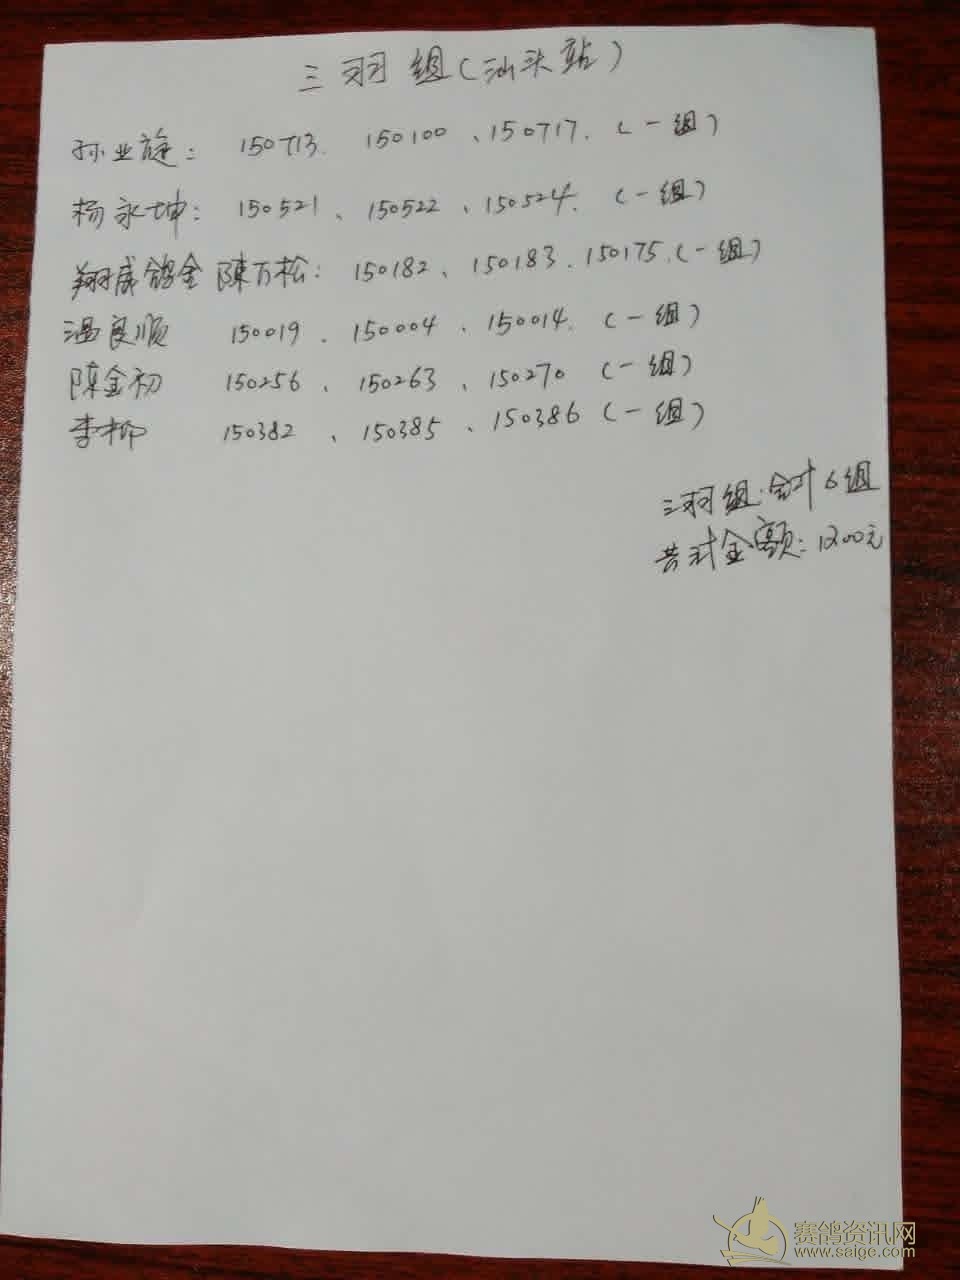 三羽组(汕头站)
孙业旋: 150713. 150100、150717. (一组)
杨永坤: 150521、150522、150524. (一组)
翔威鸽舍 陳万松: 150182、150183.150175.(一组)
温良顺 150019、150004、150014. (一组)
陈金初 150256、150263、150270 (一组)
李柳 150382、150385、150386 (一组)
三羽组:合计6组
共计金额:1200元
赛鸽资讯网
www.saige.com